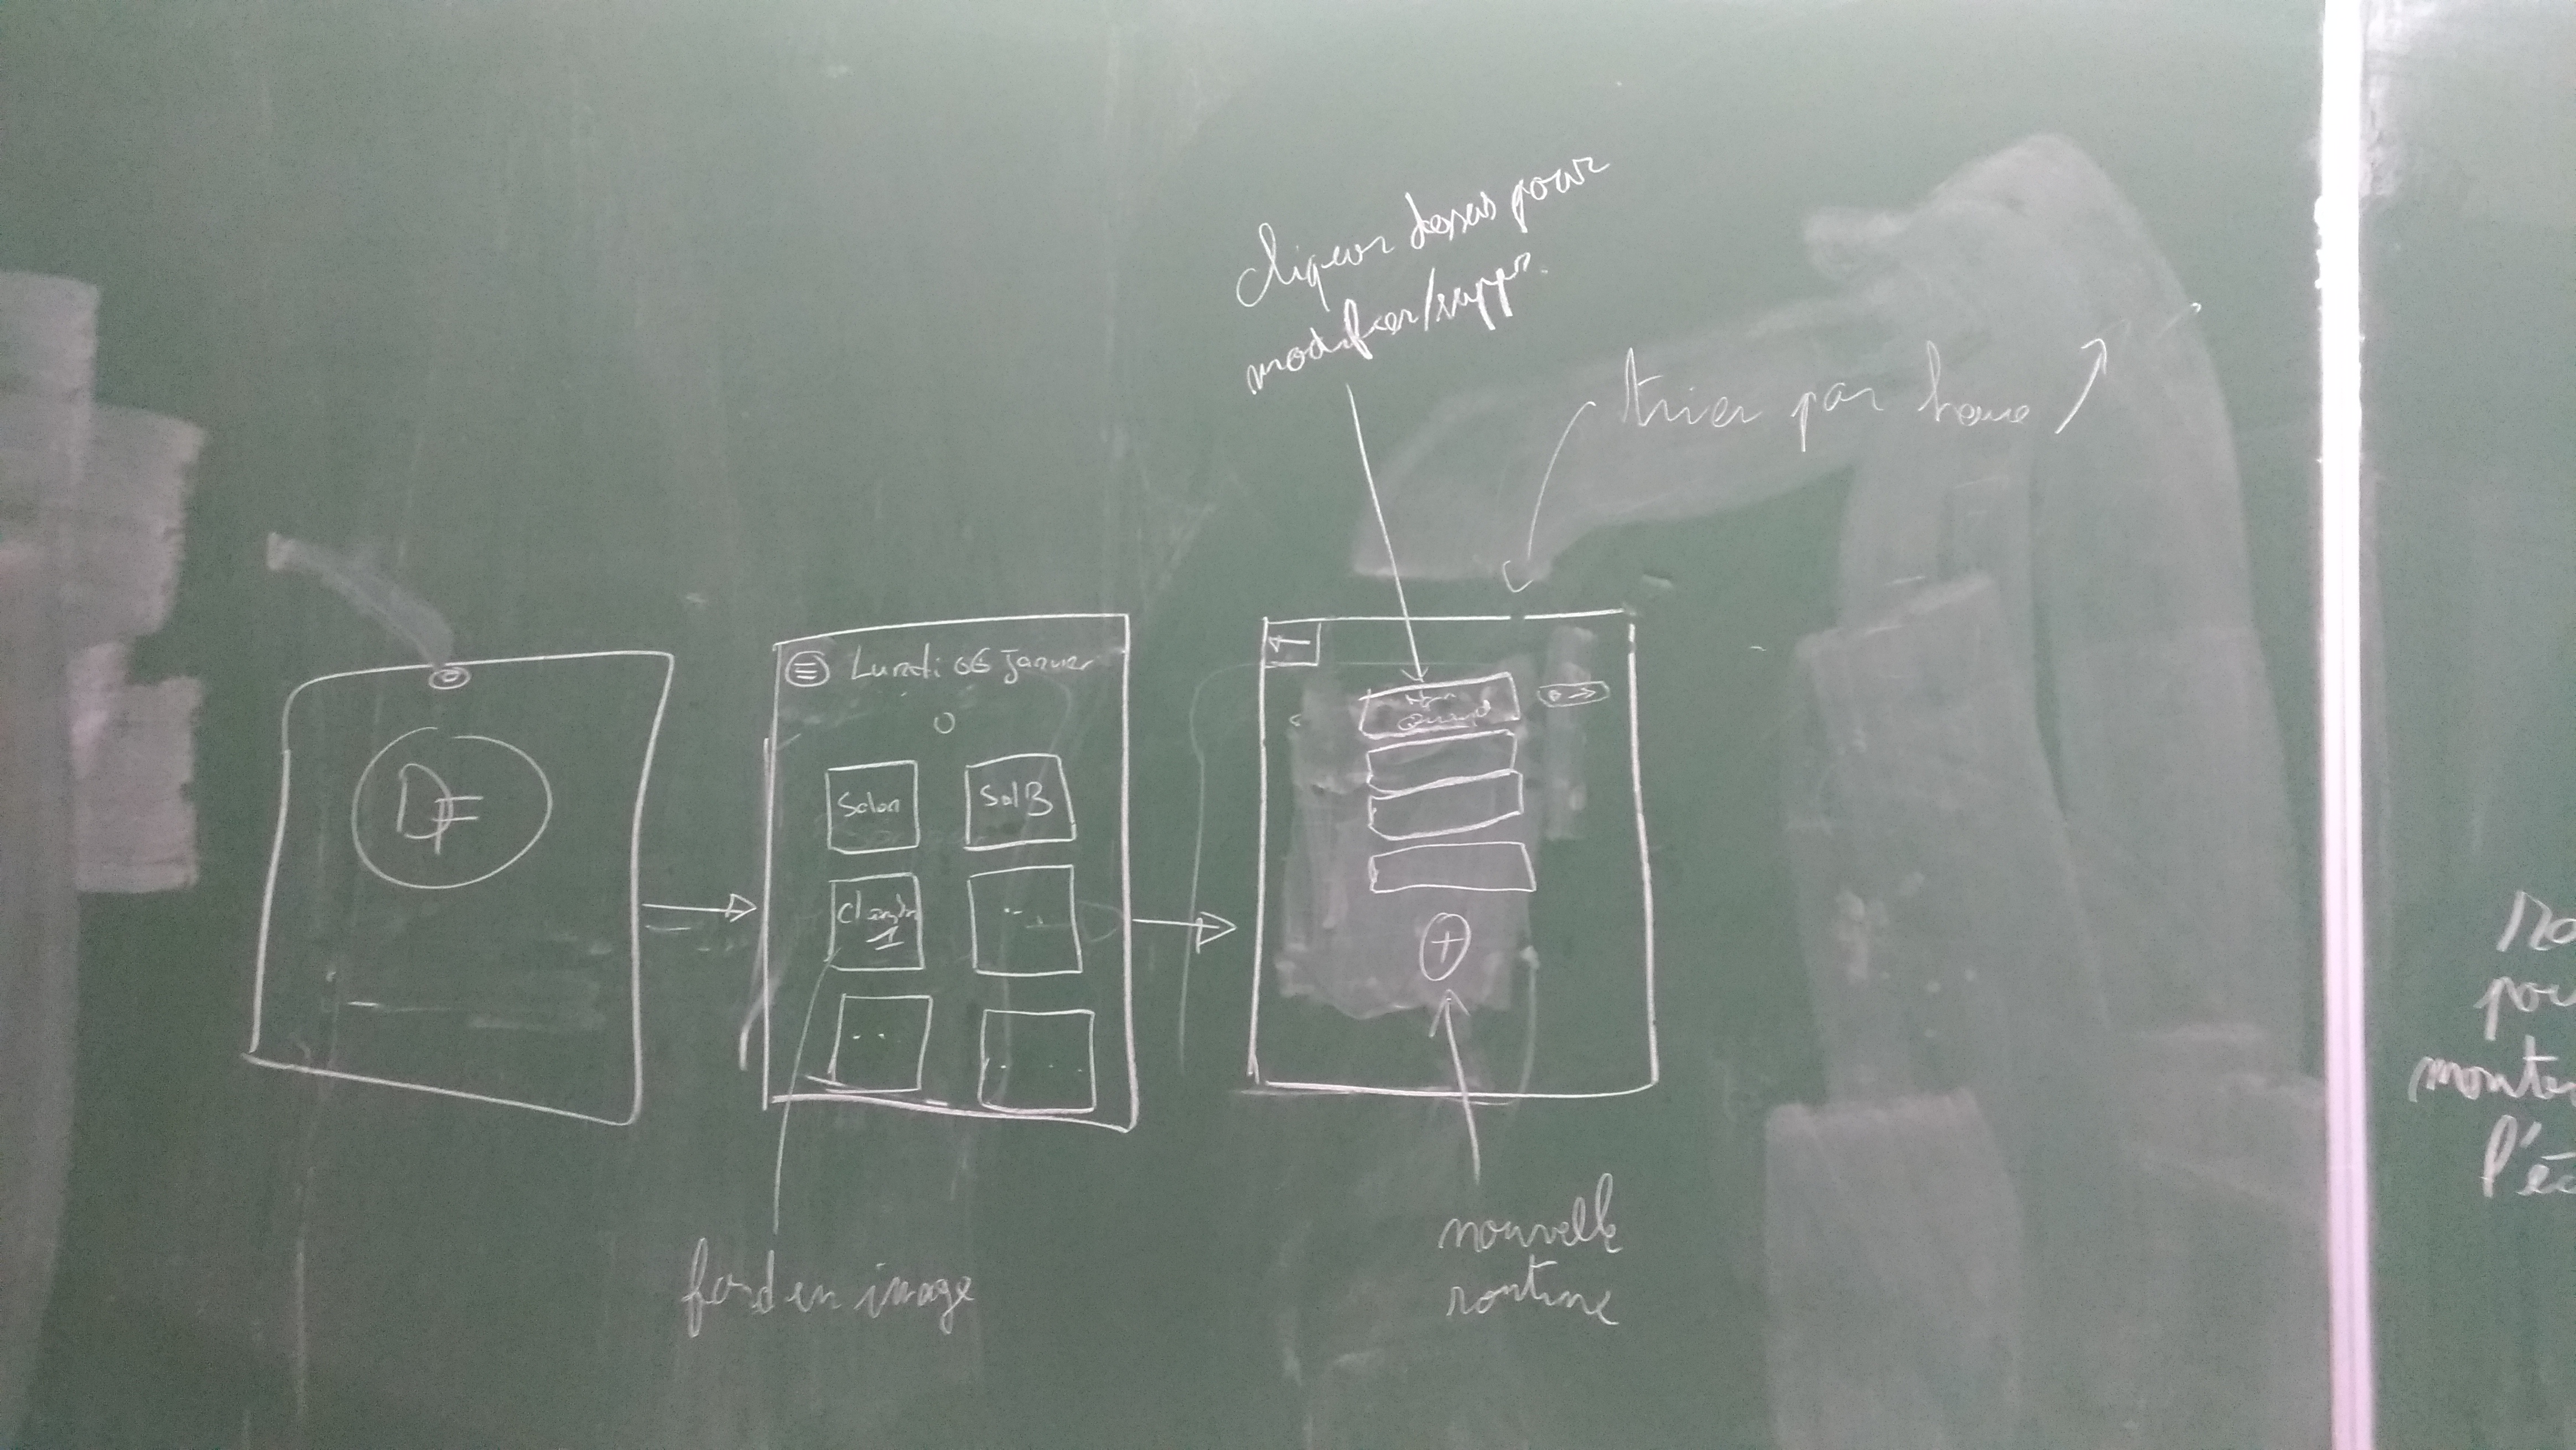 cliquer dessus pour
modifier/suppr.
trier par heure
DF
Lundi 06 Janvier
Salon
SalB
1
fond en image
nouvelle
routine
monte
l'éc